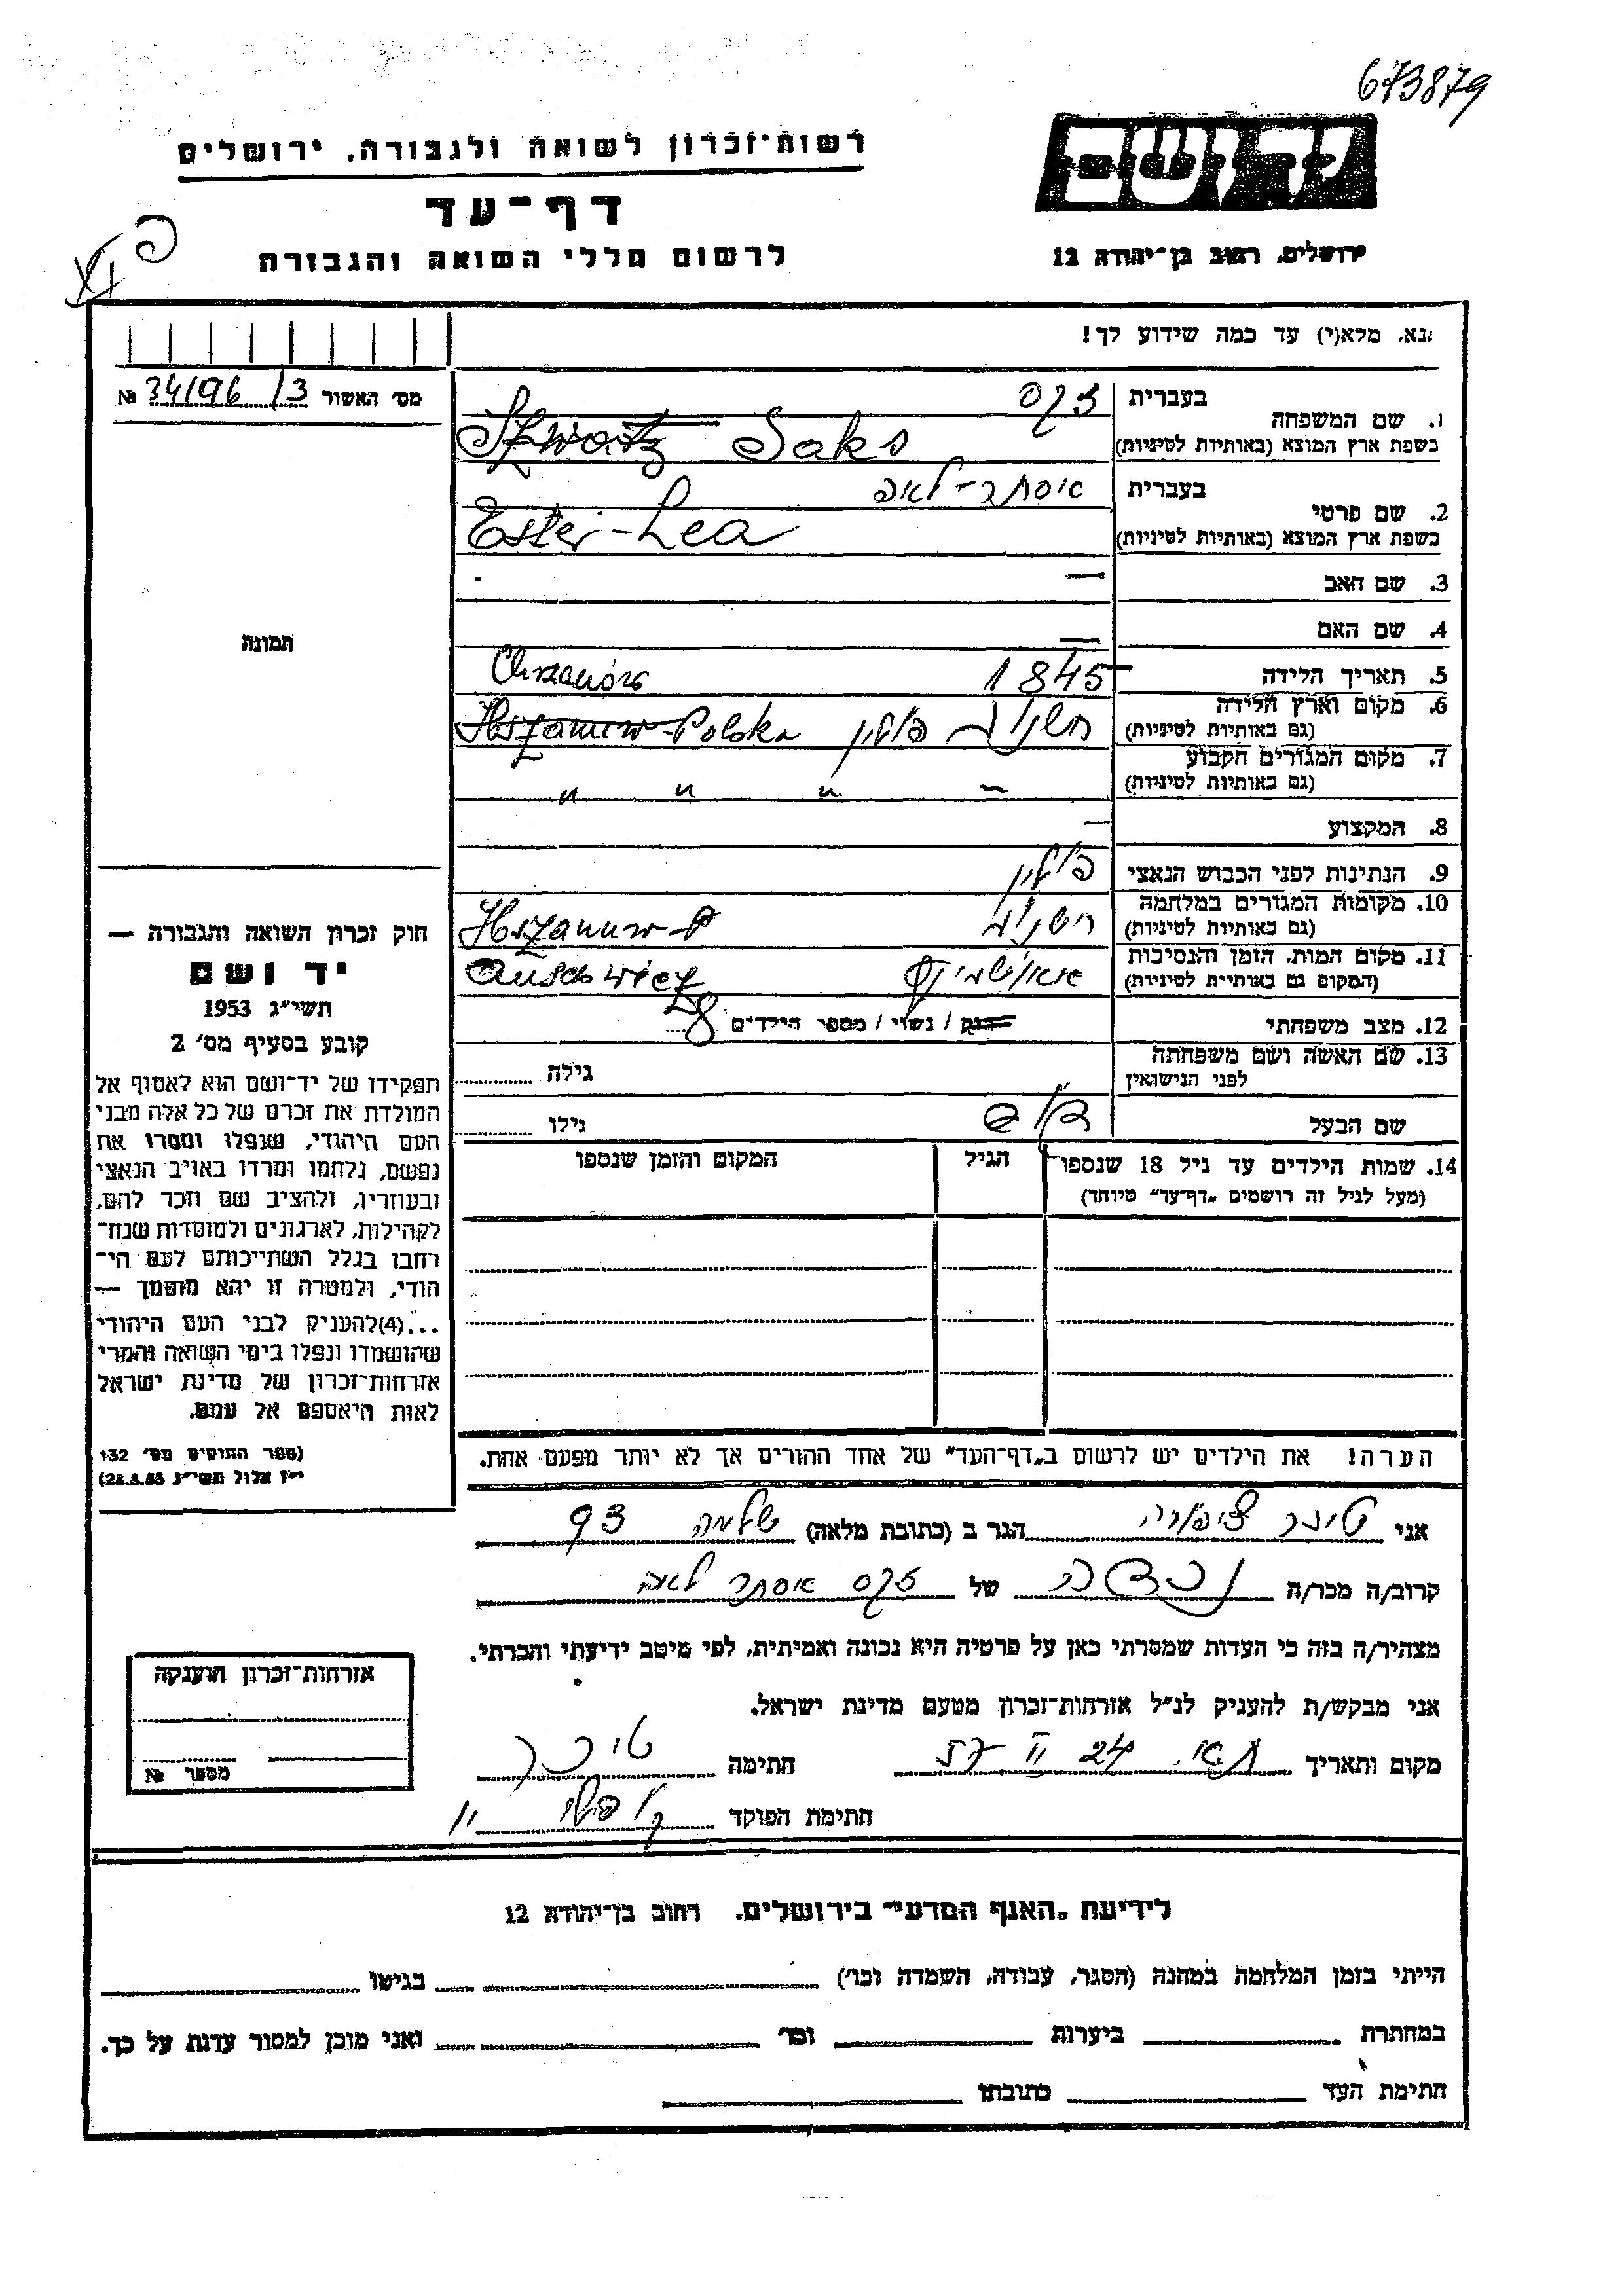 673879
רשות־זכרון לשואה ולגבורה, ירושלים
יד ושם
דף־עד
לרשום חללי השואה והגבורה
ירושלים, רחוב בן־יהודה 12
נא, מלא(י) עד כמה שידוע לך!
מס׳ האשור 3/34196 №
תמונה
בעברית זקס
1. שם המשפחה
בשפת ארץ המוצא (באותיות לטיניות) Szwartz Saks
בעברית אסתר-לאה
2. שם פרטי
בשפת ארץ המוצא (באותיות לטיניות) Ester-Lea
3. שם האב —
4. שם האם —
5. תאריך הלידה 1845 Chrzanów
6. מקום וארץ הלידה
(גם באותיות לטיניות) פולין Hszanuw-Polska
7. מקום המגורים הקבוע
(גם באותיות לטיניות) — " " "
8. המקצוע —
9. הנתינות לפני הכבוש הנאצי פולין
10. מקומות המגורים במלחמה
(גם באותיות לטיניות) Hszanuw-P
11. מקום המות, הזמן והנסיבות
(המקום גם באותיות לטיניות)
12. מצב משפחתי רווק / נשוי / מספר הילדים 8
13. שם האשה ושם משפחתה
לפני הנישואין
גילה
שם הבעל
גילו
14. שמות הילדים עד גיל 18 שנספו
(מעל לגיל זה רושמים „דף־עד" מיוחד)
הגיל
המקום והזמן שנספו
חוק זכרון השואה והגבורה —
יד ושם
תשי״ג 1953
קובע בסעיף מס׳ 2
תפקידו של יד־ושם הוא לאסוף אל
המולדת את זכרם של כל אלה מבני
העם היהודי, שנפלו ומסרו את
נפשם, נלחמו ומרדו באויב הנאצי
ובעוזריו, ולהציב שם וזכר להם,
לקהילות, לארגונים ולמוסדות שנח־
רבו בגלל השתייכותם לעם הי־
הודי, ולמטרה זו יהא מוסמך —
...(4)להעניק לבני העם היהודי
שהושמדו ונפלו בימי השואה והמרי
אזרחות־זכרון של מדינת ישראל
לאות היאספם אל עמם.
(ספר החוקים מס׳ 132
י״ז אלול תשי״ג 28.8.53)
הערה! את הילדים יש לרשום ב„דף־העד" של אחד ההורים אך לא יותר מפעם אחת.
אני ציפורה הגר ב (כתובת מלאה) שלמה 93
קרוב/ה מכר/ה נכדה של זקס אסתר לאה
מצהיר/ה בזה כי העדות שמסרתי כאן על פרטיה היא נכונה ואמיתית, לפי מיטב ידיעתי והכרתי.
אני מבקש/ת להעניק לנ״ל אזרחות־זכרון מטעם מדינת ישראל.
מקום ותאריך 24 חתימה
חתימת הפוקד
אזרחות־זכרון הוענקה
מספר №
לידיעת „האגף המדעי" בירושלים, רחוב בן־יהודה 12
הייתי בזמן המלחמה במחנה (הסגר, עבודה, השמדה וכו׳) בגיטו
במחתרת ביערות וכו׳ ואני מוכן למסור עדות על כך.
חתימת העד כתובתו